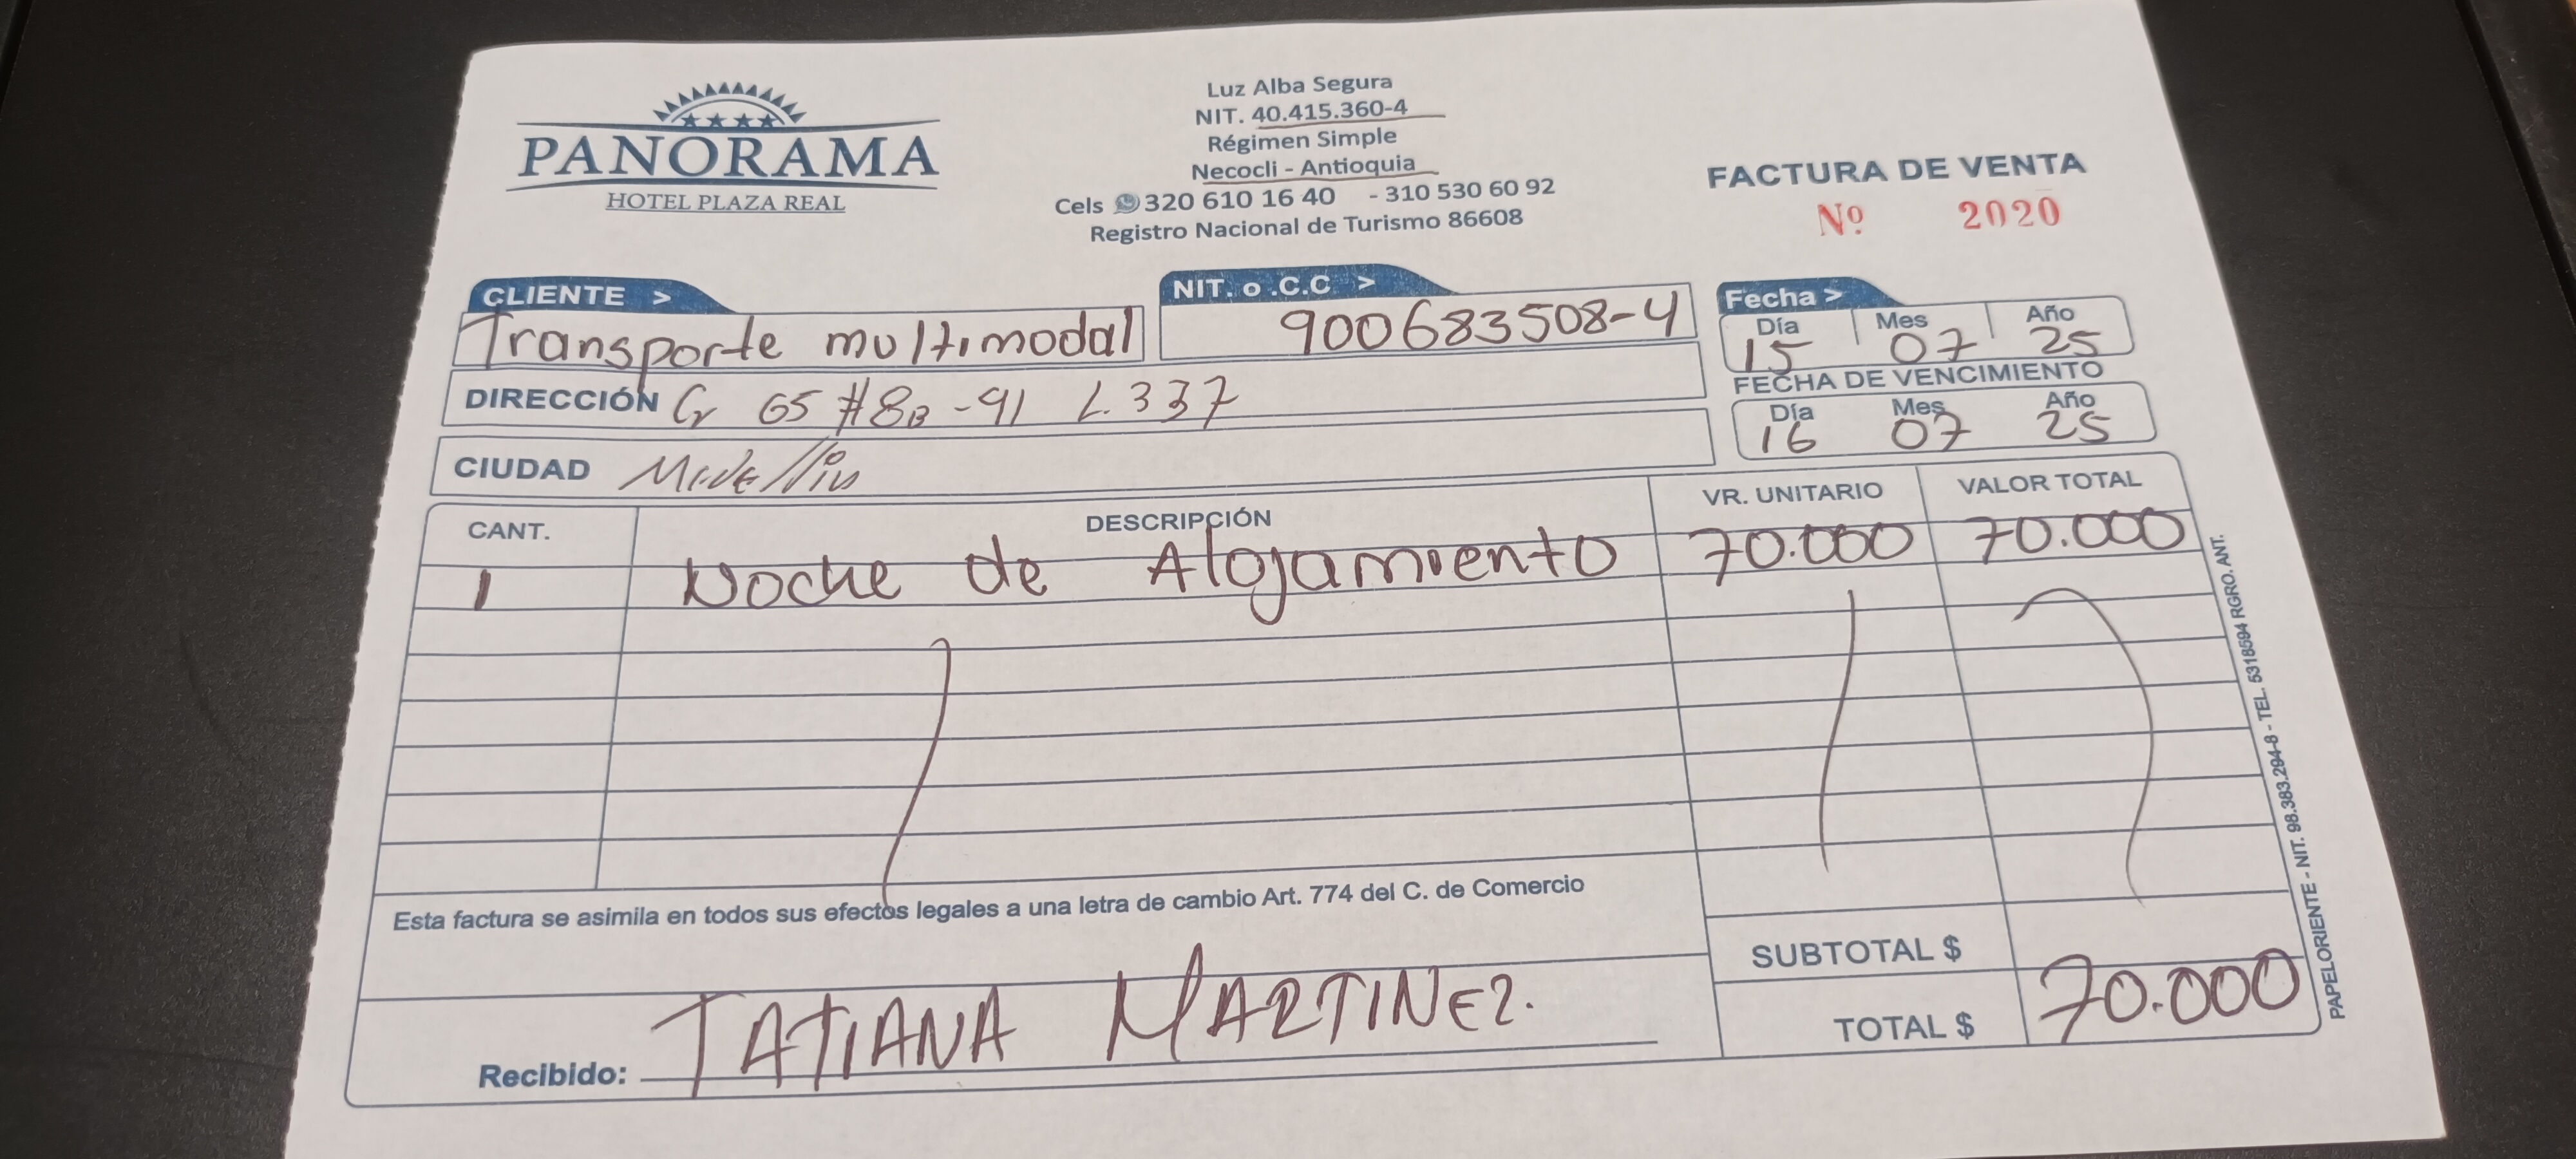 PANORAMA
HOTEL PLAZA REAL
Luz Alba Segura
NIT. 40.415.360-4
Régimen Simple
Necocli - Antioquia
Cels 320 610 16 40 - 310 530 60 92
Registro Nacional de Turismo 86608
FACTURA DE VENTA
Nº 2020
CLIENTE >
Transporte multimodal
NIT. o .C.C >
900683508-4
Fecha >
Día Mes Año
15 07 25
FECHA DE VENCIMIENTO
Día Mes Año
16 07 25
DIRECCIÓN Cr 65 #8B-91 L.337
CIUDAD Medellin
CANT. DESCRIPCIÓN VR. UNITARIO VALOR TOTAL
1 Noche de Alojamiento 70.000 70.000
Esta factura se asimila en todos sus efectos legales a una letra de cambio Art. 774 del C. de Comercio
SUBTOTAL $
TOTAL $ 70.000
Recibido: TATIANA MARTINEZ.
PAPELORIENTE - NIT. 98.383.294-8 - TEL. 5318594 RGRO. ANT.